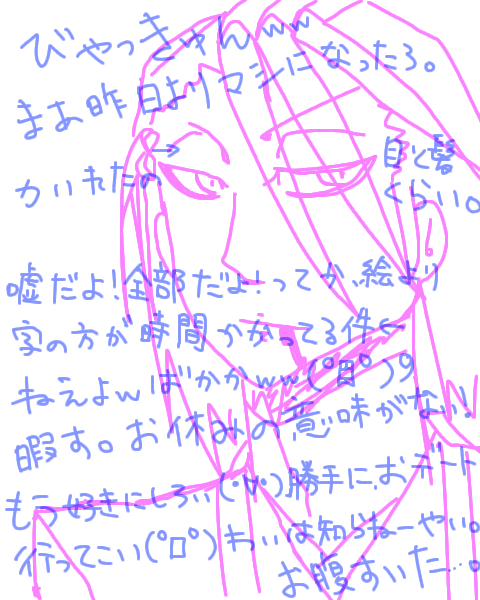 びゃっきゅんww
まあ昨日よりマシになったろ。
→
かいれたの
目と髪
くらい。
嘘だよ！全部だよ！ってか、絵より
字の方が時間かかってる件←
ねえよwばかかww(°Д°)9
暇す。お休みの意味がない！
もう好きにしろぃ(°∀°)勝手に、おデート
行ってこい(°ロ°)わぃは知らねーやい。
お腹すいた…。